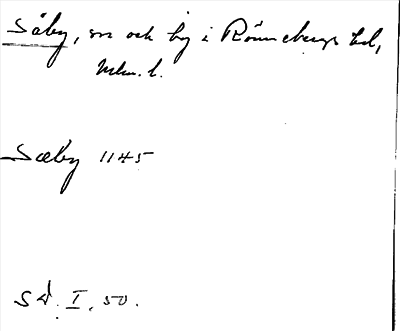 Säby, sn och by i Rönnebergs hd,
Mlm. l.
Sæby 1145
SD. I. 50.